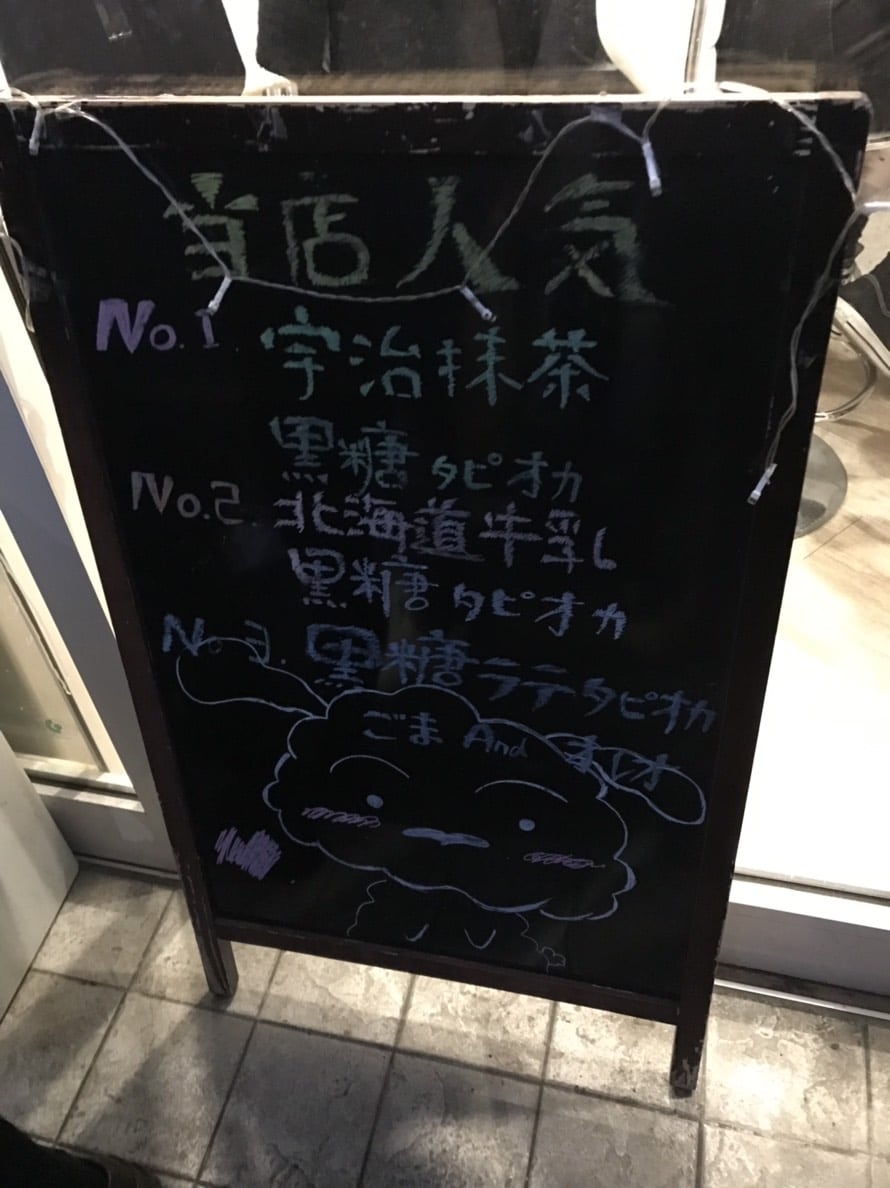 当店人気
No.1 宇治抹茶
黒糖タピオカ
No.2. 北海道牛乳
黒糖タピオカ
No.3. 黒糖ラテタピオカ
ごま And オレオ